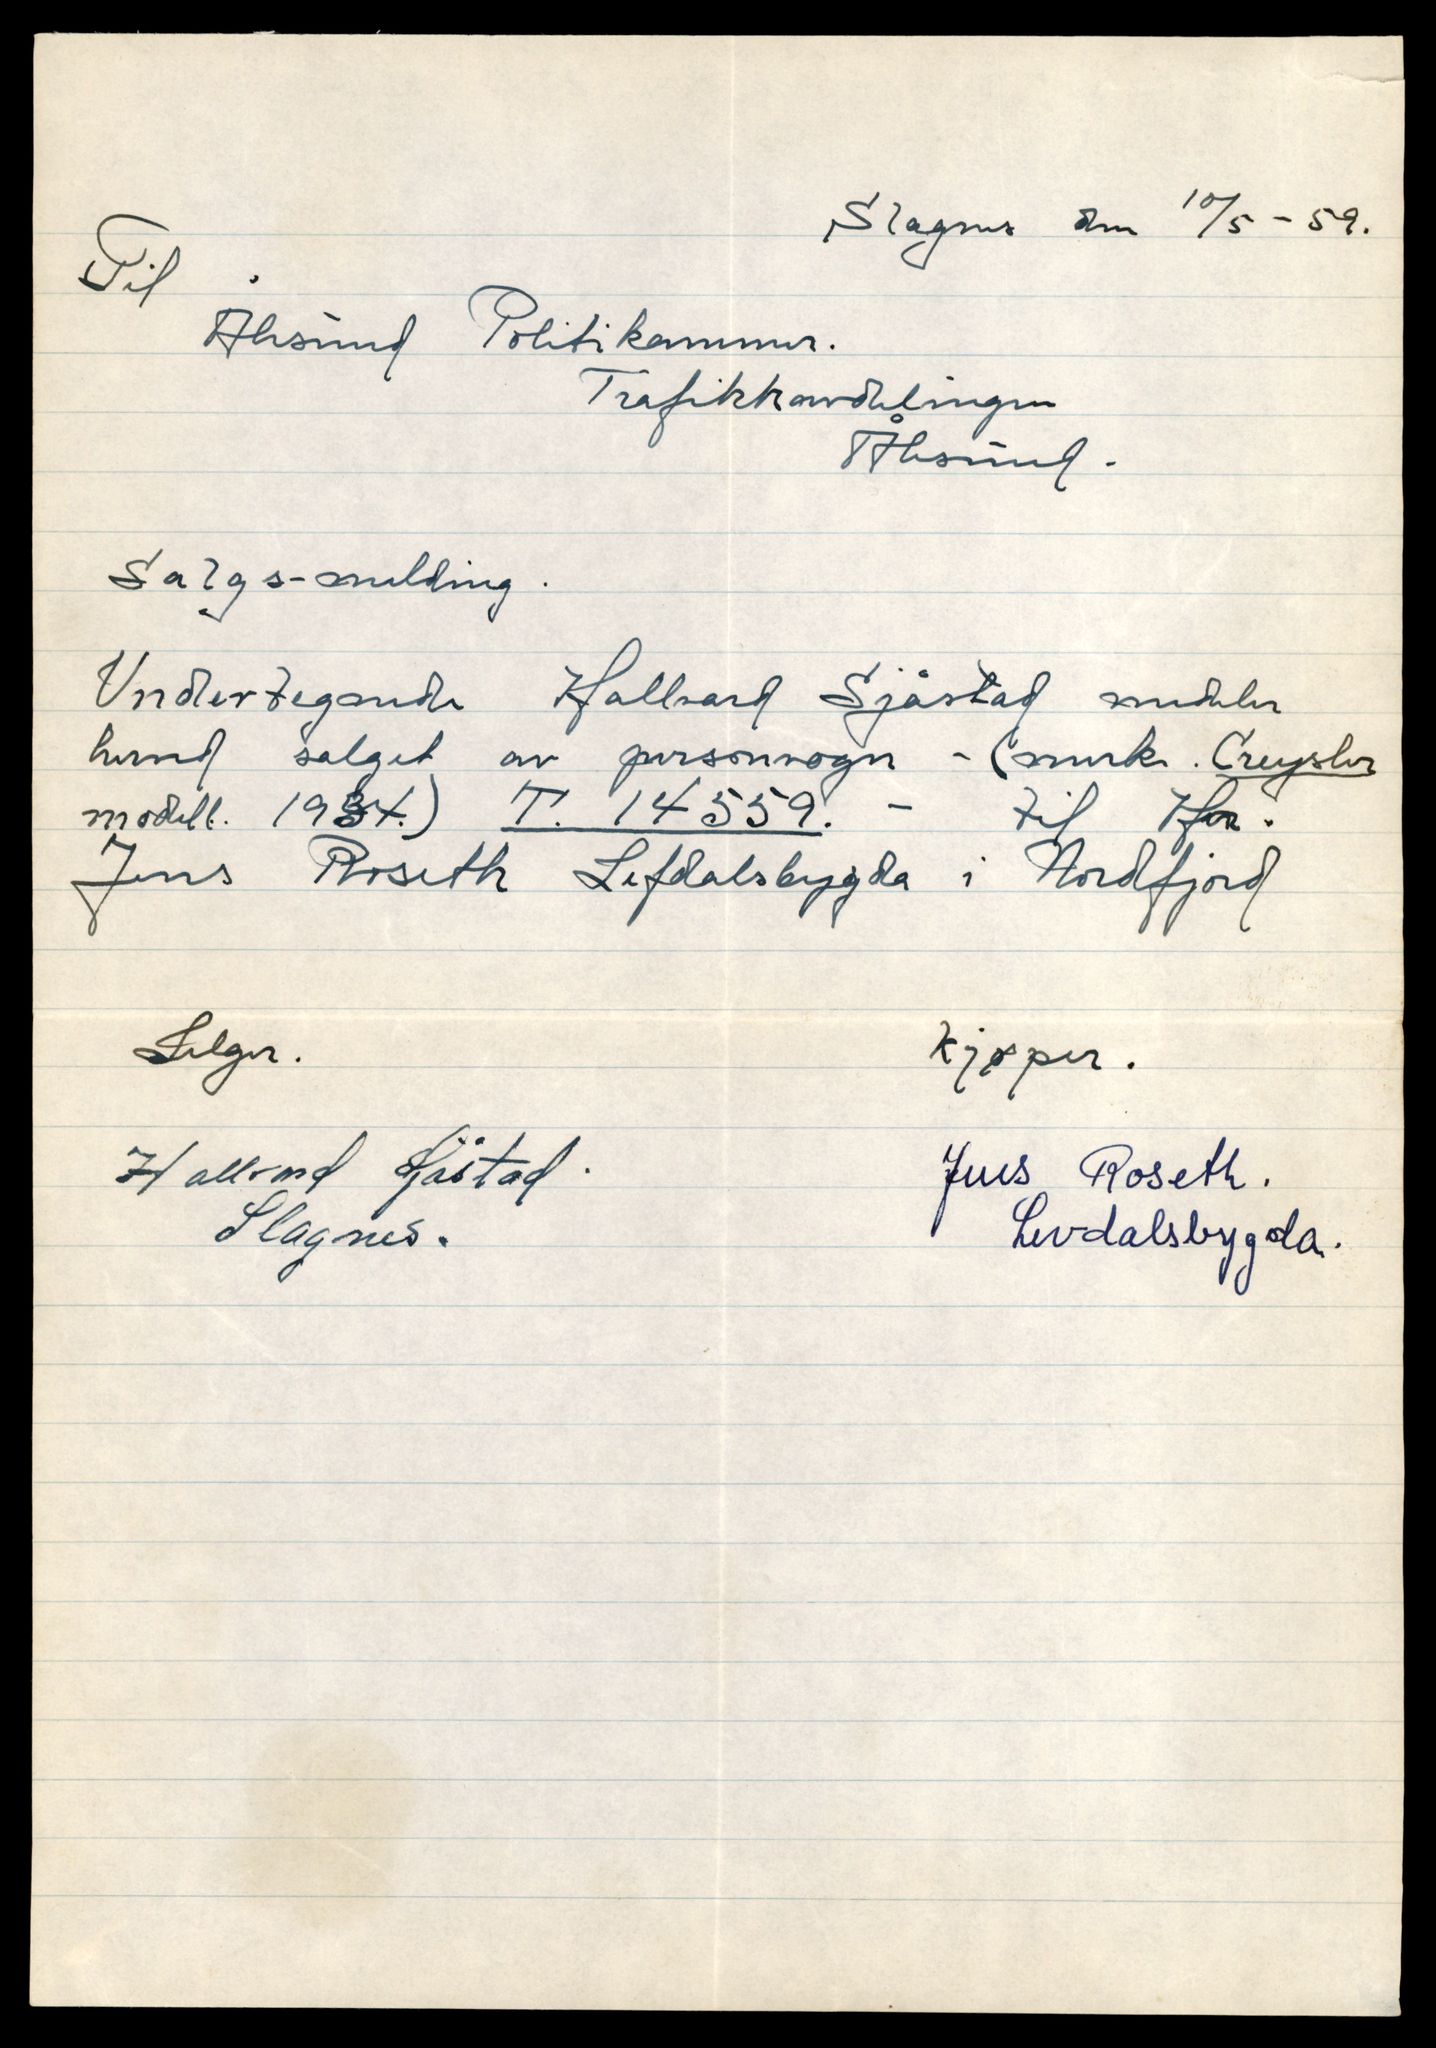 Slagnes den 10/5 - 59.
Til
Ålesund Politikammer.
Trafikkavdelingen
Ålesund.
Salgs-melding.
Undertegnede Hallvard Sjåstad meddeler
herved salget av personvogn - (merke. Creysler
modell. 1934.) T. 14559. - til Herr.
Jens Roseth Lefdalsbygda i Nordfjord
Selger.
Kjøper.
Hallvard Sjåstad.
Slagnes.
Jens Roseth.
Levdalsbygda.